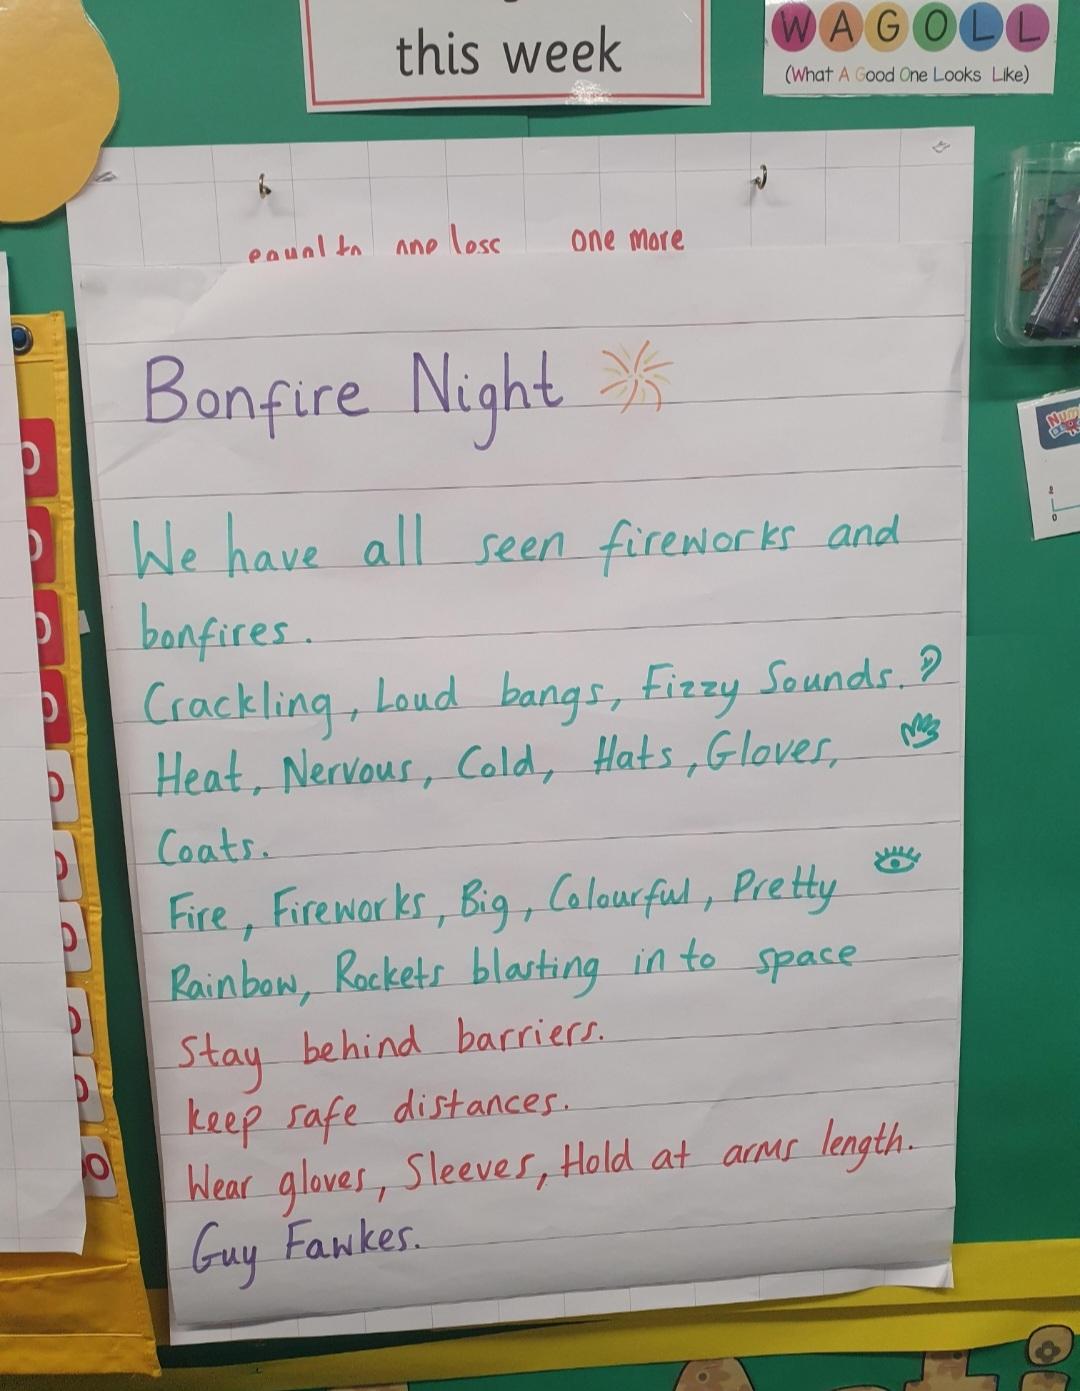 this week
WAGOLL
(What A Good One Looks Like)
equal to one less one more
Bonfire Night
We have all seen fireworks and
bonfires.
Crackling, Loud bangs, Fizzy Sounds.
Heat, Nervous, Cold, Hats, Gloves,
Coats.
Fire, Fireworks, Big, Colourful, Pretty
Rainbow, Rockets blasting in to space
Stay behind barriers.
keep safe distances.
Wear gloves, Sleeves, Hold at arms length.
Guy Fawkes.